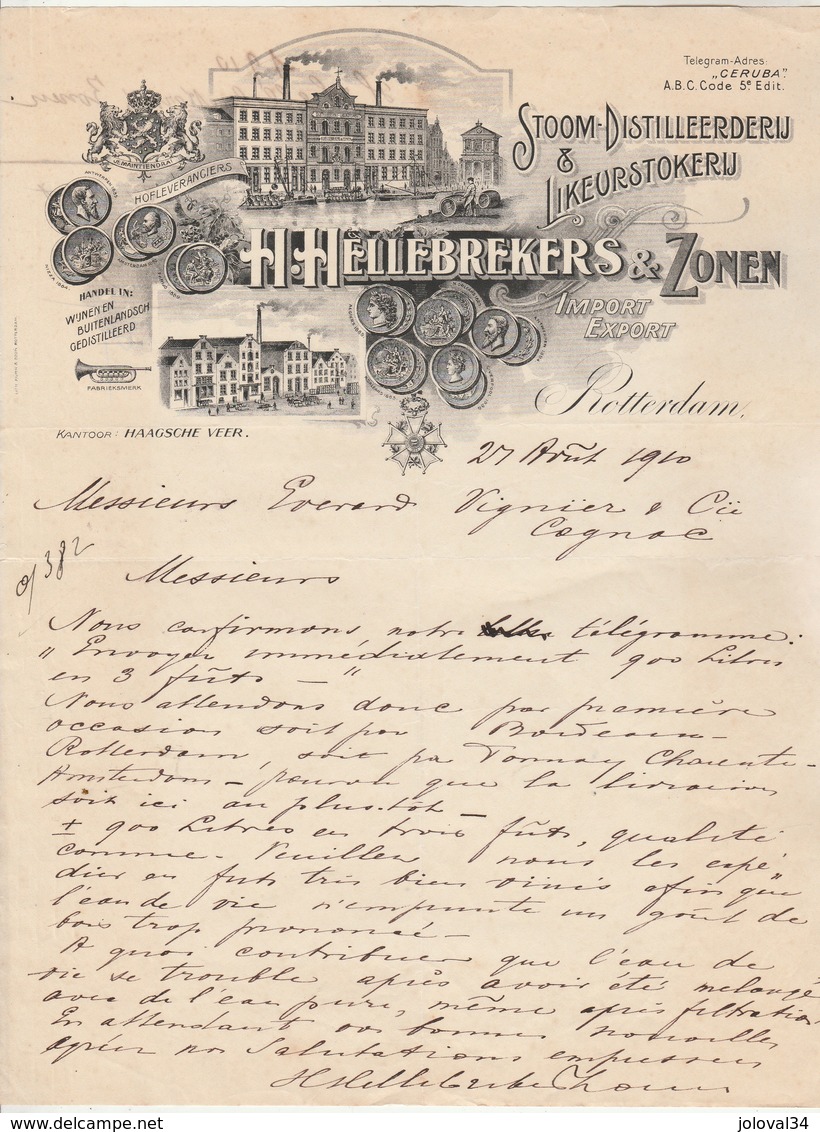 Telegram-Adres:
„CERUBA".
A.B.C. Code 5e Edit.
STOOM-DISTILLEERDERIJ
&
LIKEURSTOKERIJ
JE MAINTIENDRAI
HOFLEVERANCIERS
H. HELLEBREKERS & ZONEN
IMPORT
EXPORT
HANDEL IN:
WIJNEN EN
BUITENLANDSCH
GEDISTILLEERD
FABRIEKSMERK
KANTOOR: HAAGSCHE VEER.
Rotterdam,
27 Août 1910
Messieurs Everard Vignier & Cie
Cognac
382
Messieurs
Nous confirmons notre télégramme:
„Envoyer immédiatement 900 Litres
en 3 fûts — "
Nous attendons donc par première
occasion soit par Bordeaux-
Rotterdam, soit par Tonnay Charente-
Amsterdam — pourvu que la livraison
soit ici au plus tôt —
± 900 Litres en trois fûts, qualité
comme. Veuillez nous les expé
dier en futs très bien vinés afin que
l'eau de vie n'emprunte un goût de
bois trop prononcé —
A quoi contribuer que l'eau de
vie se trouble après avoir été melangé
avec de l'eau pure, même après filtration
En attendant vos bonnes nouvelles
agréez nos Salutations empressées
H Hellebrekers & Zonen
joloval34